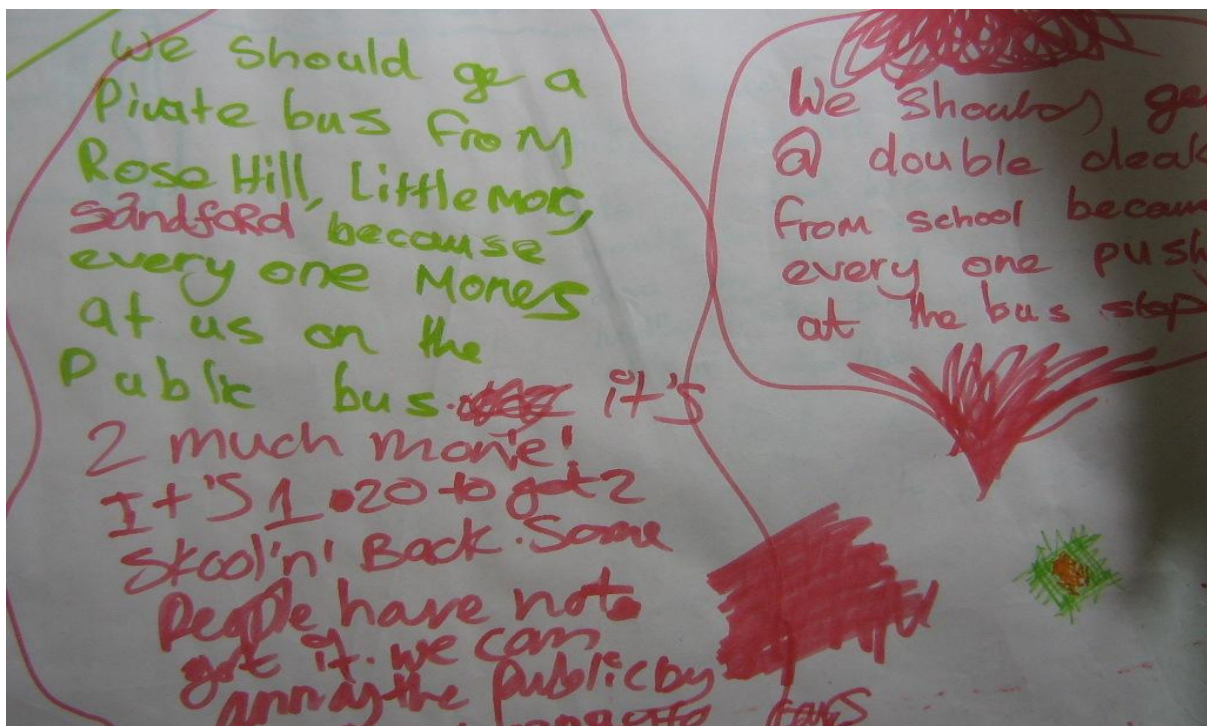 We should ge a
Pivate bus from
Rose Hill, Littlemore,
sandford because
every one Mones
at us on the
Public bus. it's
2 much monie!
It's 1.20 to get 2
skool'n' Back. Some
People have not
got it. we can
annoy the public by
We should ge
a double deak
from school becaus
every one push
at the bus stop